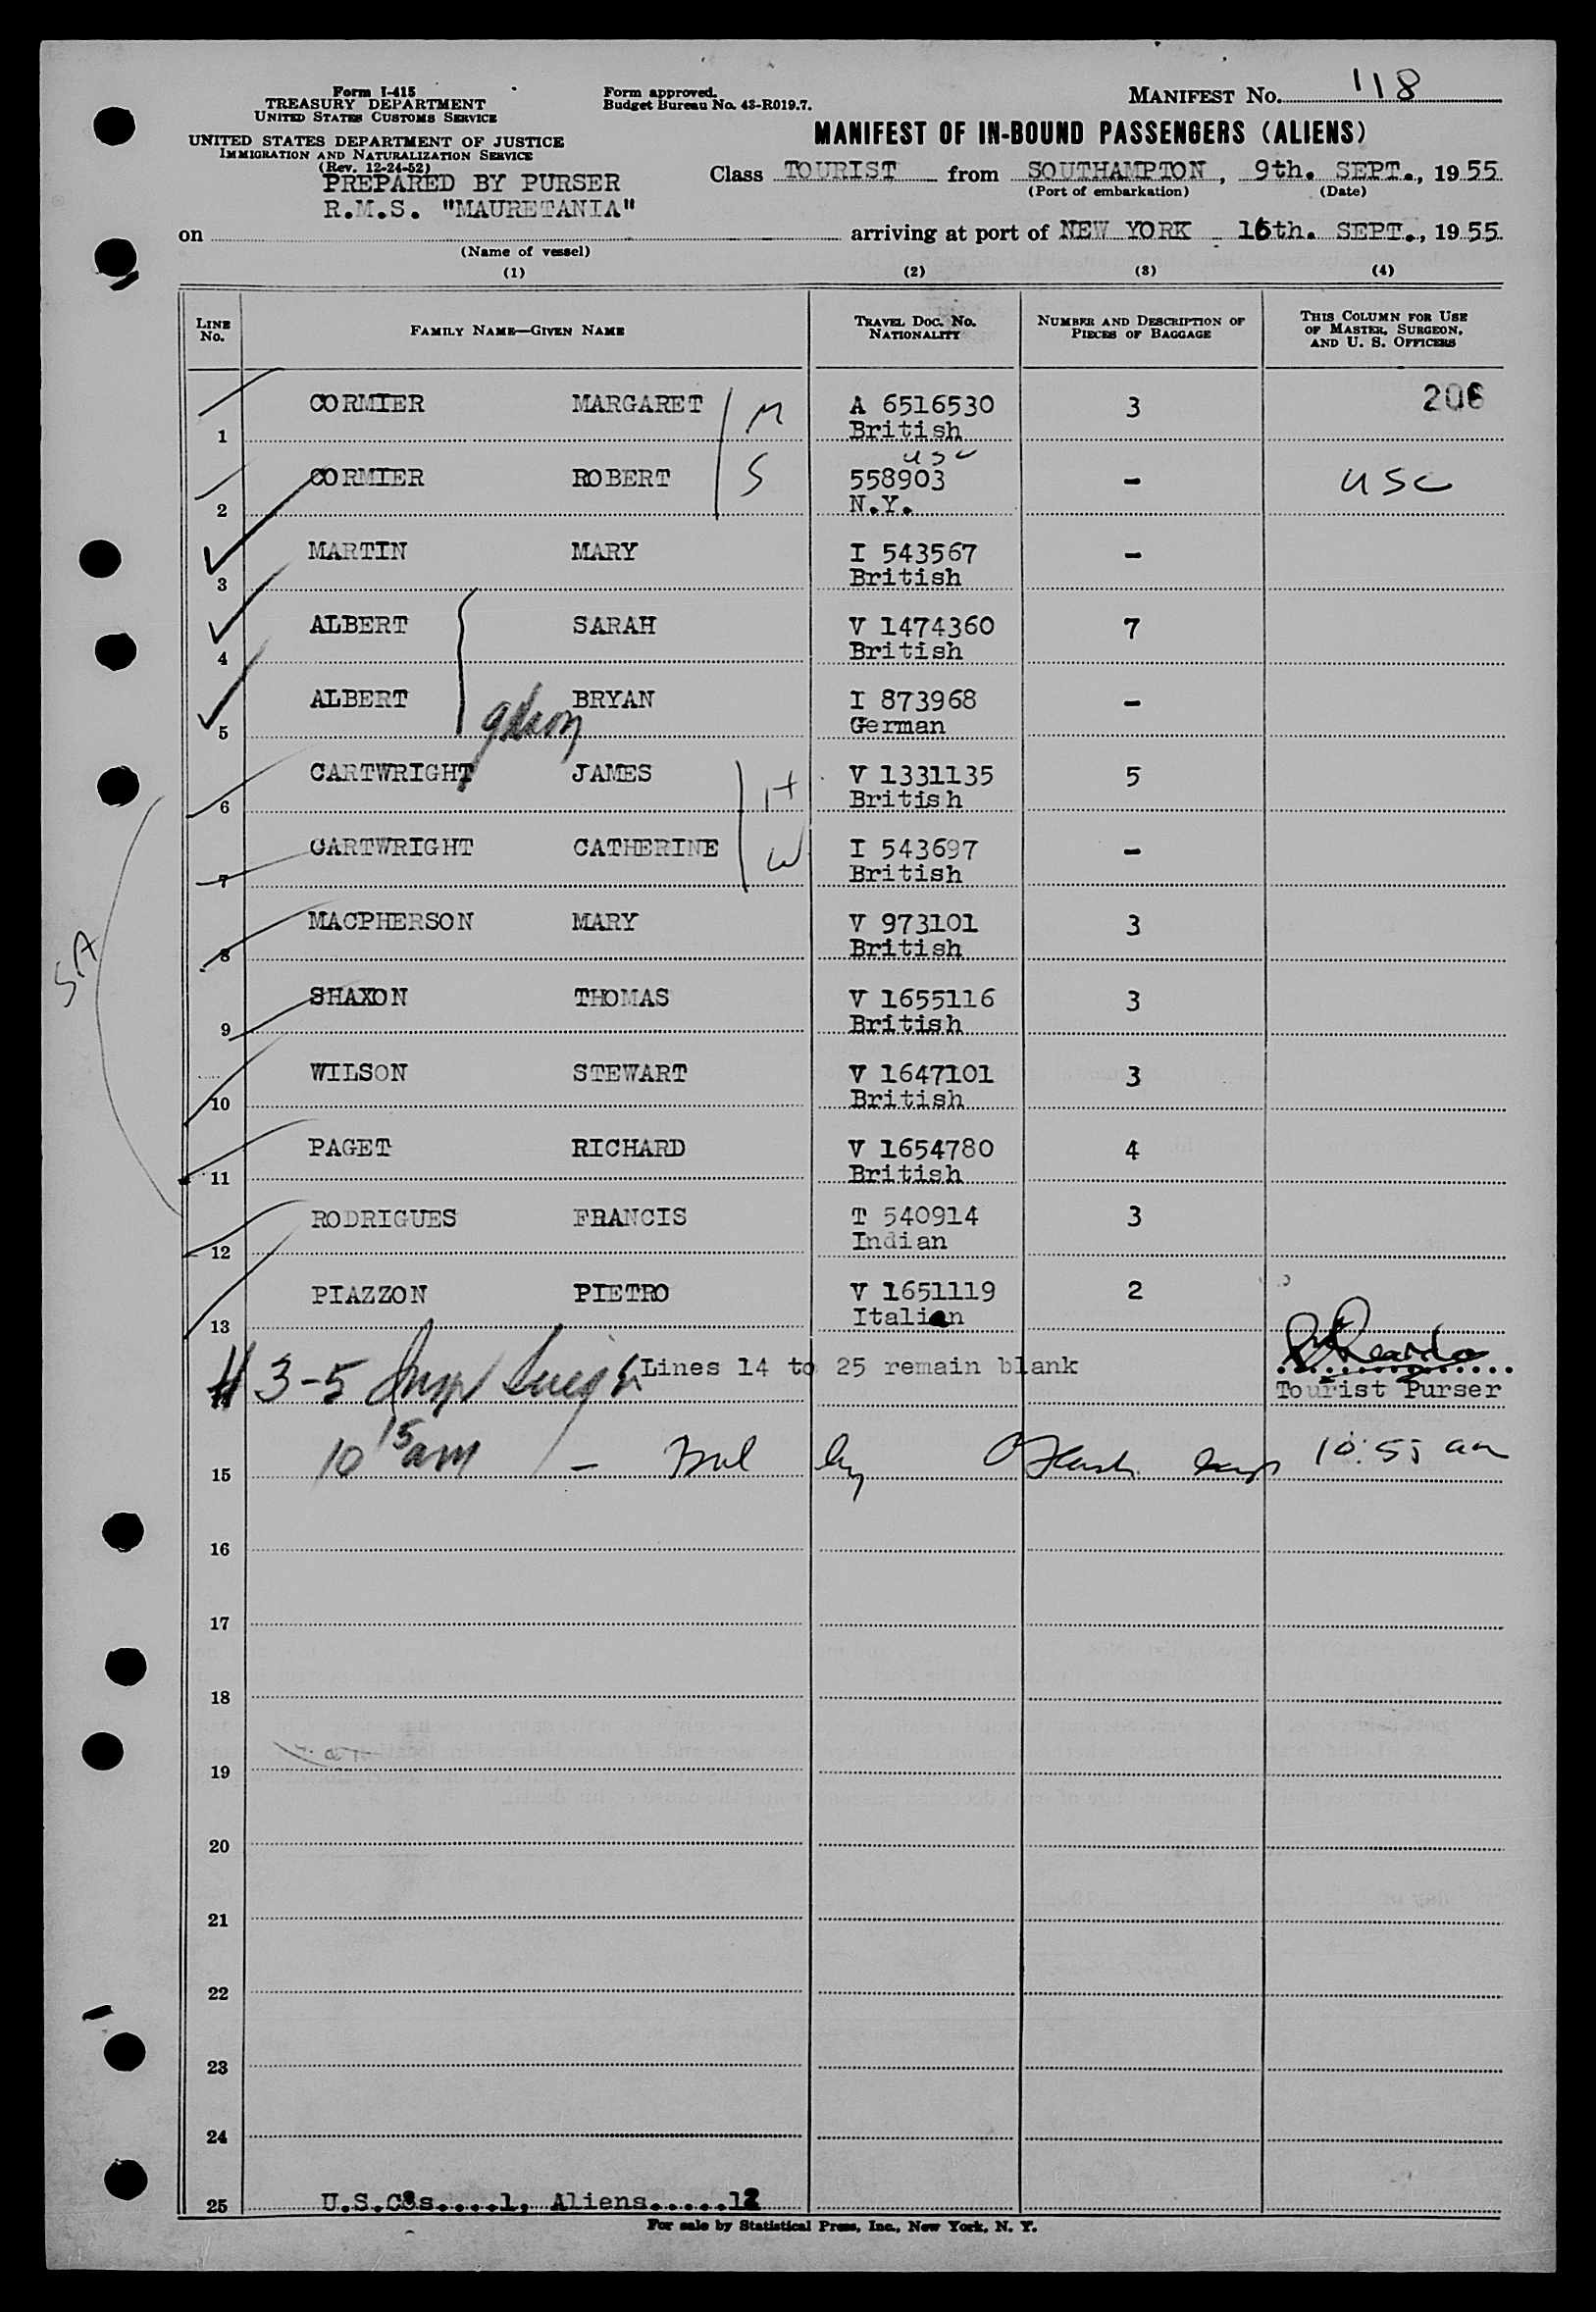 Form I-415
TREASURY DEPARTMENT
UNITED STATES CUSTOMS SERVICE
UNITED STATES DEPARTMENT OF JUSTICE
IMMIGRATION AND NATURALIZATION SERVICE
(Rev. 12-24-52)
Form approved.
Budget Bureau No. 43-R019.7.
MANIFEST NO. 118
MANIFEST OF IN-BOUND PASSENGERS (ALIENS)
Class TOURIST from SOUTHAMPTON, 9th. SEPT., 1955
(Port of embarkation) (Date)
PREPARED BY PURSER
R.M.S. "MAURETANIA"
on arriving at port of NEW YORK 16th. SEPT., 1955
(Name of vessel)
(1) (2) (3) (4)
LINE NO. FAMILY NAME—GIVEN NAME TRAVEL DOC. NO. NATIONALITY NUMBER AND DESCRIPTION OF PIECES OF BAGGAGE THIS COLUMN FOR USE OF MASTER, SURGEON, AND U. S. OFFICERS
CORMIER MARGARET M A 6516530 3 206
1 British
usc
CORMIER ROBERT S 558903 - USC
2 N.Y.
MARTIN MARY I 543567 -
3 British
ALBERT SARAH V 1474360 7
4 British
ALBERT BRYAN I 873968 -
5 German
CARTWRIGHT JAMES H V 1331135 5
6 British
CARTWRIGHT CATHERINE W I 543697 -
7 British
MACPHERSON MARY V 973101 3
8 British
SA
SHAXON THOMAS V 1655116 3
9 British
WILSON STEWART V 1647101 3
10 British
PAGET RICHARD V 1654780 4
11 British
RODRIGUES FRANCIS T 540914 3
12 Indian
PIAZZON PIETRO V 1651119 2
13 Italian
# 3-5 Lines 14 to 25 remain blank
Tourist Purser
14
10 15 am - by 10:55 am
15
16
17
18
19
20
21
22
23
24
25 U.S.C8s.....1, Aliens.....12
For sale by Statistical Press, Inc., New York, N. Y.